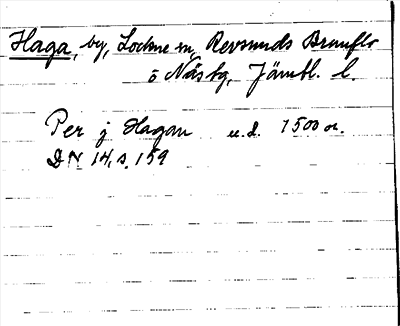 Haga, by, Lockne sn, Revsunds Brunflo
o Näs tg, Jämtl. l.
Per j Hagan u. d. 1500
DN 14, s. 159